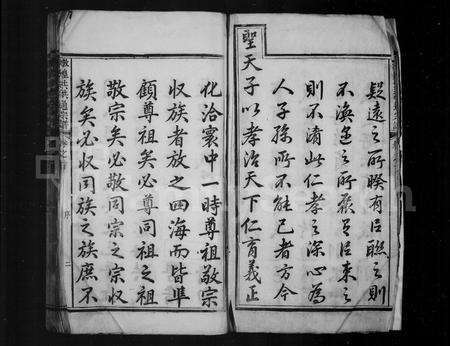 疑遠之所睽有臣聯之則
不渙迩之所裂有臣束之
則不淆此仁孝之深心為
人子孫所不能已者方今
聖天子以孝治天下仁育義正
化洽寰中一時尊祖敬宗
収族者放之四海而皆準
顧尊祖矣必尊同祖之祖
敬宗矣必敬同宗之宗収
族矣必収同族之族庶不
敦煌洪氏通宗
序
二